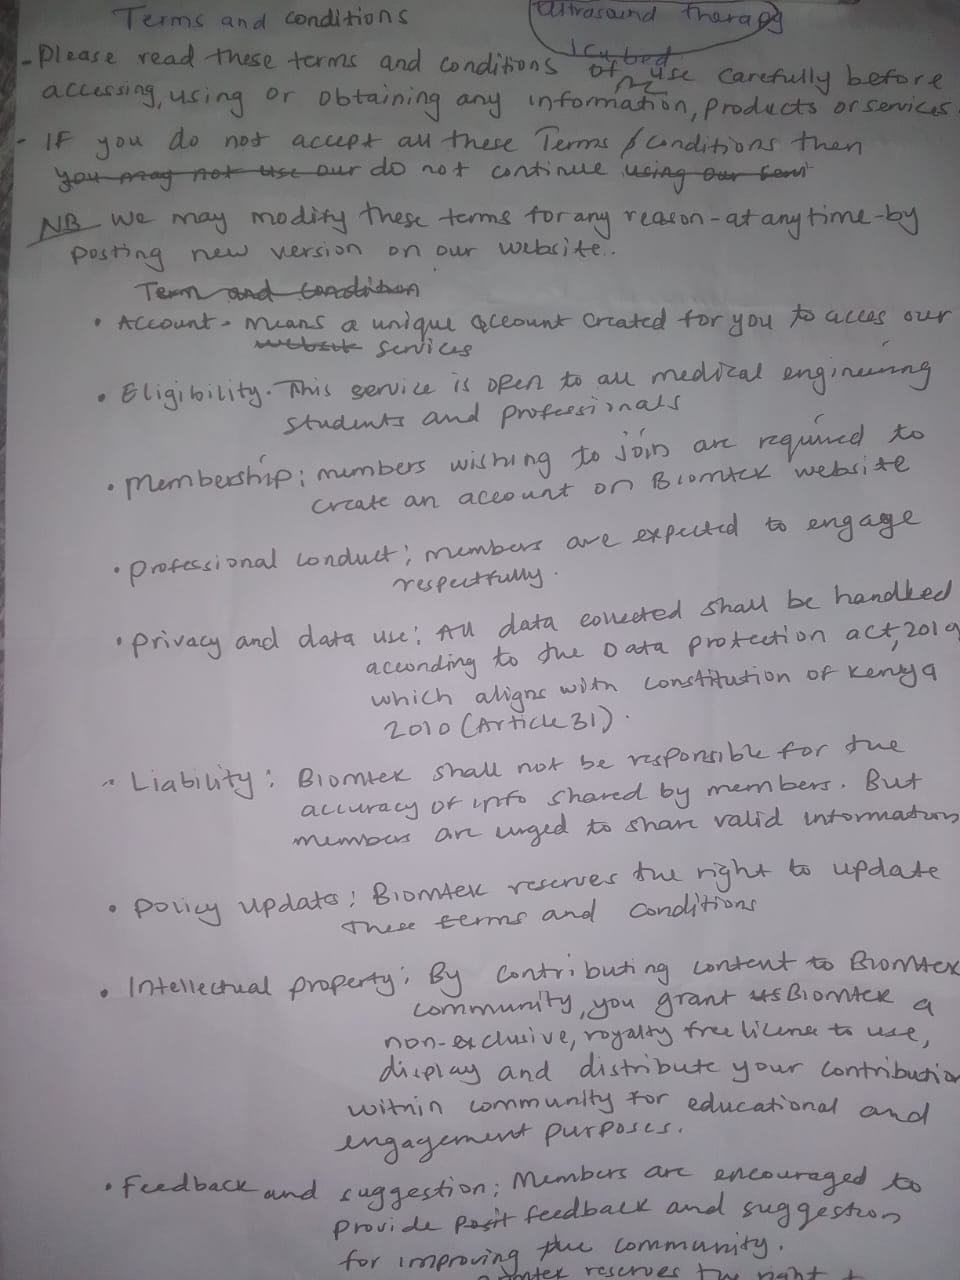 Terms and conditions
Ultrasound therapy
ICU bed
- Please read these terms and conditions of use carefully before
accessing, using or obtaining any information, products or services.
- IF you do not accept all these Terms & Conditions then
you may not use our do not continue using our servi
NB We may modify these terms for any reason - at any time - by
posting new version on our website..
Term and condition
• Account - Means a unique account created for you to acces our
website services
• Eligibility. This service is open to all medical engineering
students and professionals
• Membership; members wishing to join are required to
create an account on Biomtek website
• Professional conduct; members are expected to engage
respectfully.
• Privacy and data use: All data collected shall be handled
according to the Data protection act, 2019
which aligns with constitution of Kenya
2010 (Article 31).
• Liability: Biomtek shall not be responsible for the
accuracy of info shared by members. But
members are urged to share valid information
• Policy updates; Biomtek reserves the right to update
these terms and conditions
• Intellectual property; By contributing content to Biomtek
community, you grant us Biomtek a
non-exclusive, royalty free license to use,
display and distribute your contribution
within community for educational and
engagement purposes.
• Feedback and suggestion; Members are encouraged to
provide posit feedback and suggestion
for improving the community.
reserves the right t